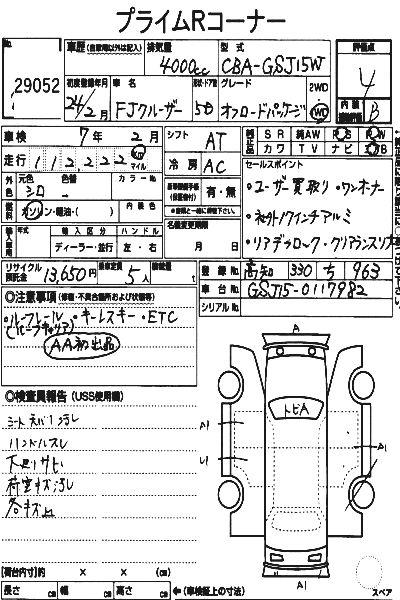 プライムRコーナー
No.
29052
車歴 (自家用以外は記入)
排気量
4000cc
型式
CBA-GSJ15W
評価点
4
内装
B
初度登録年月
24/2月
車名
FJクルーザー
形状・ドア数
5D
グレード
オフロードパッケージ
2WD
4WD
車検
7年 2月
シフト
AT
SR 純AW PS PW
カワ TV ナビ
走行
112,222
km マイル
冷房
AC
セールスポイント
・ユーザー買取り・ワンオーナー
・社外17インチアルミ
・リアデフロック・クリアランスソナー
外色
元色
シロ
色替
カラーNo.
有・無
燃料
ガソリン・軽油・( )
内装色
名義変更期限
月 日
輸入車
年式
輸入区分
ハンドル
ディーラー・並行
左・右
リサイクル預託金
13,650円
乗車定員
5人
積載量
登録No.
高知 330 ち 963
車台No.
GSJ15-0117982
シリアルNo.
◎注意事項 (修復・不具合箇所および状態等)
・ルーフレール・キーレスキー・ETC
(ルーフキャリア)
AA初出品
◎検査員報告 (USS使用欄)
シート
ハンドルスレ
下廻りサビ
荷室キズ汚レ
各キズ凹
A
トビA
A1
A1
U1
A1
スペア
【荷台内寸】約 × × (cm)
長さ cm 幅 cm 高さ cm
←(車検証上の寸法)